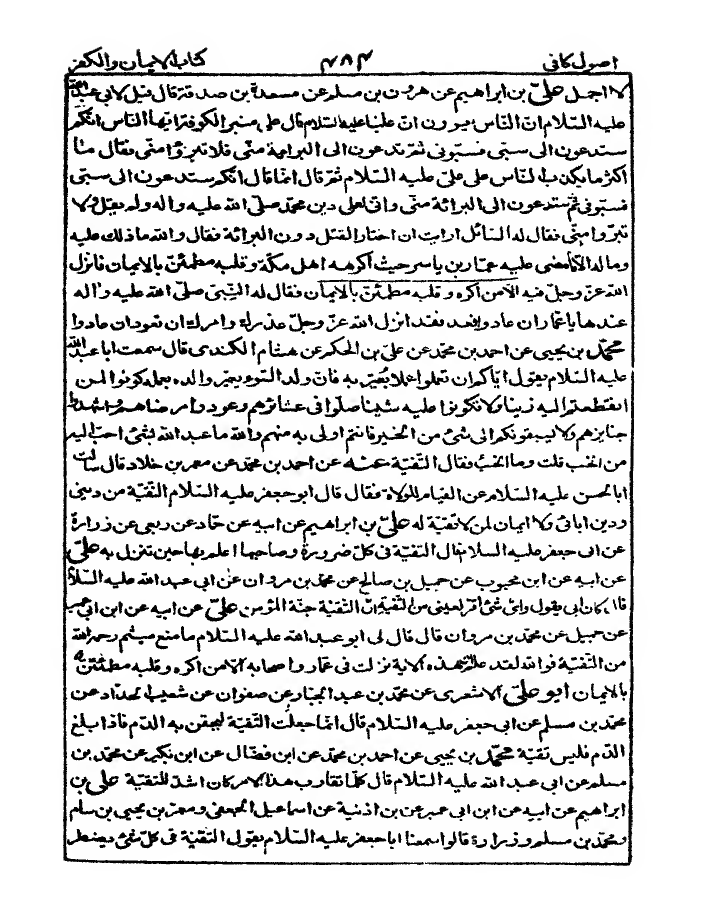 اصول كافى ٤٨٤ كتاب الايمان والكفر
لا اجمل علىّ بن ابراهيم عن هرون بن مسلم عن مسعدة بن صدقة قال قيل لابى عبد الله
عليه السلام انّ الناس يروون انّ عليّا عليه السلام قال على منبر الكوفة ايّها الناس انّكم
ستدعون الى سبّى فسبّونى ثم تدعون الى البراءة منّى فلا تبرّؤا منّى فقال ما
اكثر ما يكذب الناس على علىّ عليه السلام ثم قال انّما قال انّكم ستدعون الى سبّى
فسبّونى ثم ستدعون الى البرائة منّى وانّى لعلى دين محمّد صلّى الله عليه واله ولم يقل ولا
تبرّوا منّى فقال له السائل ارايت ان اختار القتل دون البرائة فقال والله ما ذلك عليه
وما له الّا ما مضى عليه عمّار بن ياسر حيث اكرهه اهل مكّة وقلبه مطمئنّ بالايمان فانزل
الله عزّ وجلّ فيه الّا من اكره وقلبه مطمئنّ بالايمان فقال له النّبىّ صلّى الله عليه واله
عندها يا عمّار ان عادوا فعد فقد انزل الله عزّ وجلّ عذرك وامرك ان تعود ان عادوا
محمّد بن يحيى عن احمد بن محمّد عن علىّ بن الحكم عن هشام الكندى قال سمعت ابا عبد الله
عليه السلام يقول ايّاكم ان تعملوا عملا يُعيّر به فانّ ولد السّوء يعيّر والده بعمله كونوا لمن
انقطعتم اليه زينا ولا تكونوا عليه شينا صلّوا فى عشائرهم وعودوا مرضاهم واشهدوا
جنايزهم ولا يسبقونكم الى شئ من الخير فانتم اولى به منهم والله ما عبد الله بشئ احبّ اليه
من الخبء قلت وما الخبء فقال التّقيّة عنه عن احمد بن محمّد عن معمر بن خلاد قال سالت
ابا الحسن عليه السلام عن القيام للولاة فقال قال ابو جعفر عليه السلام التّقيّة من دينى
ودين ابائى ولا ايمان لمن لا تقيّة له علىّ بن ابراهيم عن ابيه عن حمّاد عن ربعى عن زرارة
عن ابى جعفر عليه السلام قال التقيّة فى كلّ ضرورة وصاحبها اعلم بها حين تنزل به علىّ
عن ابيه عن ابن محبوب عن جميل بن صالح عن محمّد بن مروان عن ابى عبد الله عليه السلا
قال كان ابى يقول واىّ شئ اقرّ لعينى من التّقيّة انّ التّقيّة جنّة المؤمن علىّ عن ابيه عن ابن ابى عمير
عن جميل عن محمّد بن مروان قال قال لى ابو عبد الله عليه السلام ما منع ميثم رحمه الله
من التّقيّة فوالله لقد علم انّ هذه الاية نزلت فى عمّار واصحابه الّا من اكره وقلبه مطمئنّ
بالايمان ابو علىّ الاشعرى عن محمّد بن عبد الجبّار عن صفوان عن شعيب الحداد عن
محمّد بن مسلم عن ابى جعفر عليه السلام قال انّما جعلت التّقيّة ليحقن به الدّم فاذا بلغ
الدّم فليس تقيّة محمّد بن يحيى عن احمد بن محمّد عن ابن فضّال عن ابن بكير عن محمّد بن
مسلم عن ابى عبد الله عليه السلام قال كلّما تقارب هذا الامر كان اشدّ للتقيّة علىّ بن
ابراهيم عن ابيه عن ابن ابى عمير عن بن اذنية عن اسماعيل الجعفى ومعمر بن يحيى بن سام
ومحمّد بن مسلم وزرارة قالوا سمعنا ابا جعفر عليه السلام يقول التقيّة فى كلّ شئ يضطر